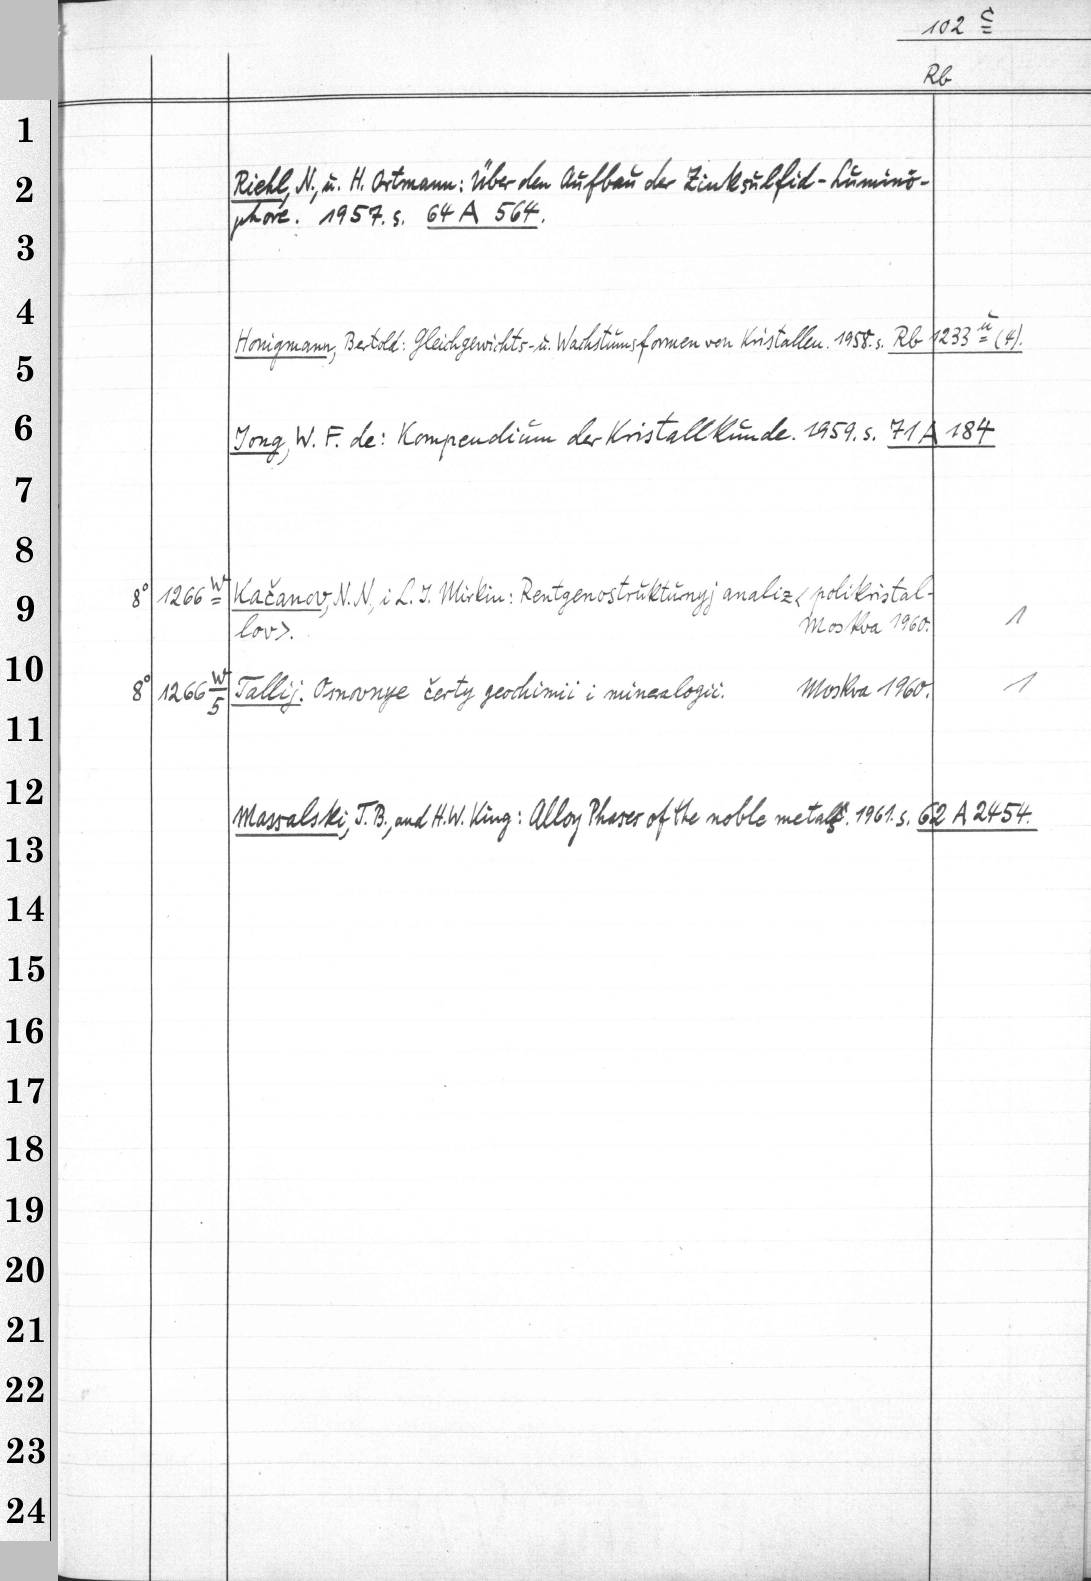 102 c
Rb
1
2
Riehl, N., u. H. Ortmann: Über den Aufbau der Zinksulfid-Lumino-
phore. 1957. s. 64 A 564.
3
4
Honigmann, Bertold: Gleichgewichts- u. Wachstumsformen von Kristallen. 1958. s. Rb 1233 u (4).
5
6
Jong, W. F. de: Kompendium der Kristallkunde. 1959. s. 71 A 184
7
8
8° 1266 w Kačanov, N. N., i L. I. Mirkin: Rentgenostrukturnyj analiz < polikristal-
9
lov>. Moskva 1960. 1
10
8° 1266 w/5 Tallij. Osnovnye čerty geochimii i minealogii. Moskva 1960. 1
11
12
Massalski, T. B., and H. W. King: Alloy Phases of the noble metals. 1961. s. 62 A 2454.
13
14
15
16
17
18
19
20
21
22
23
24